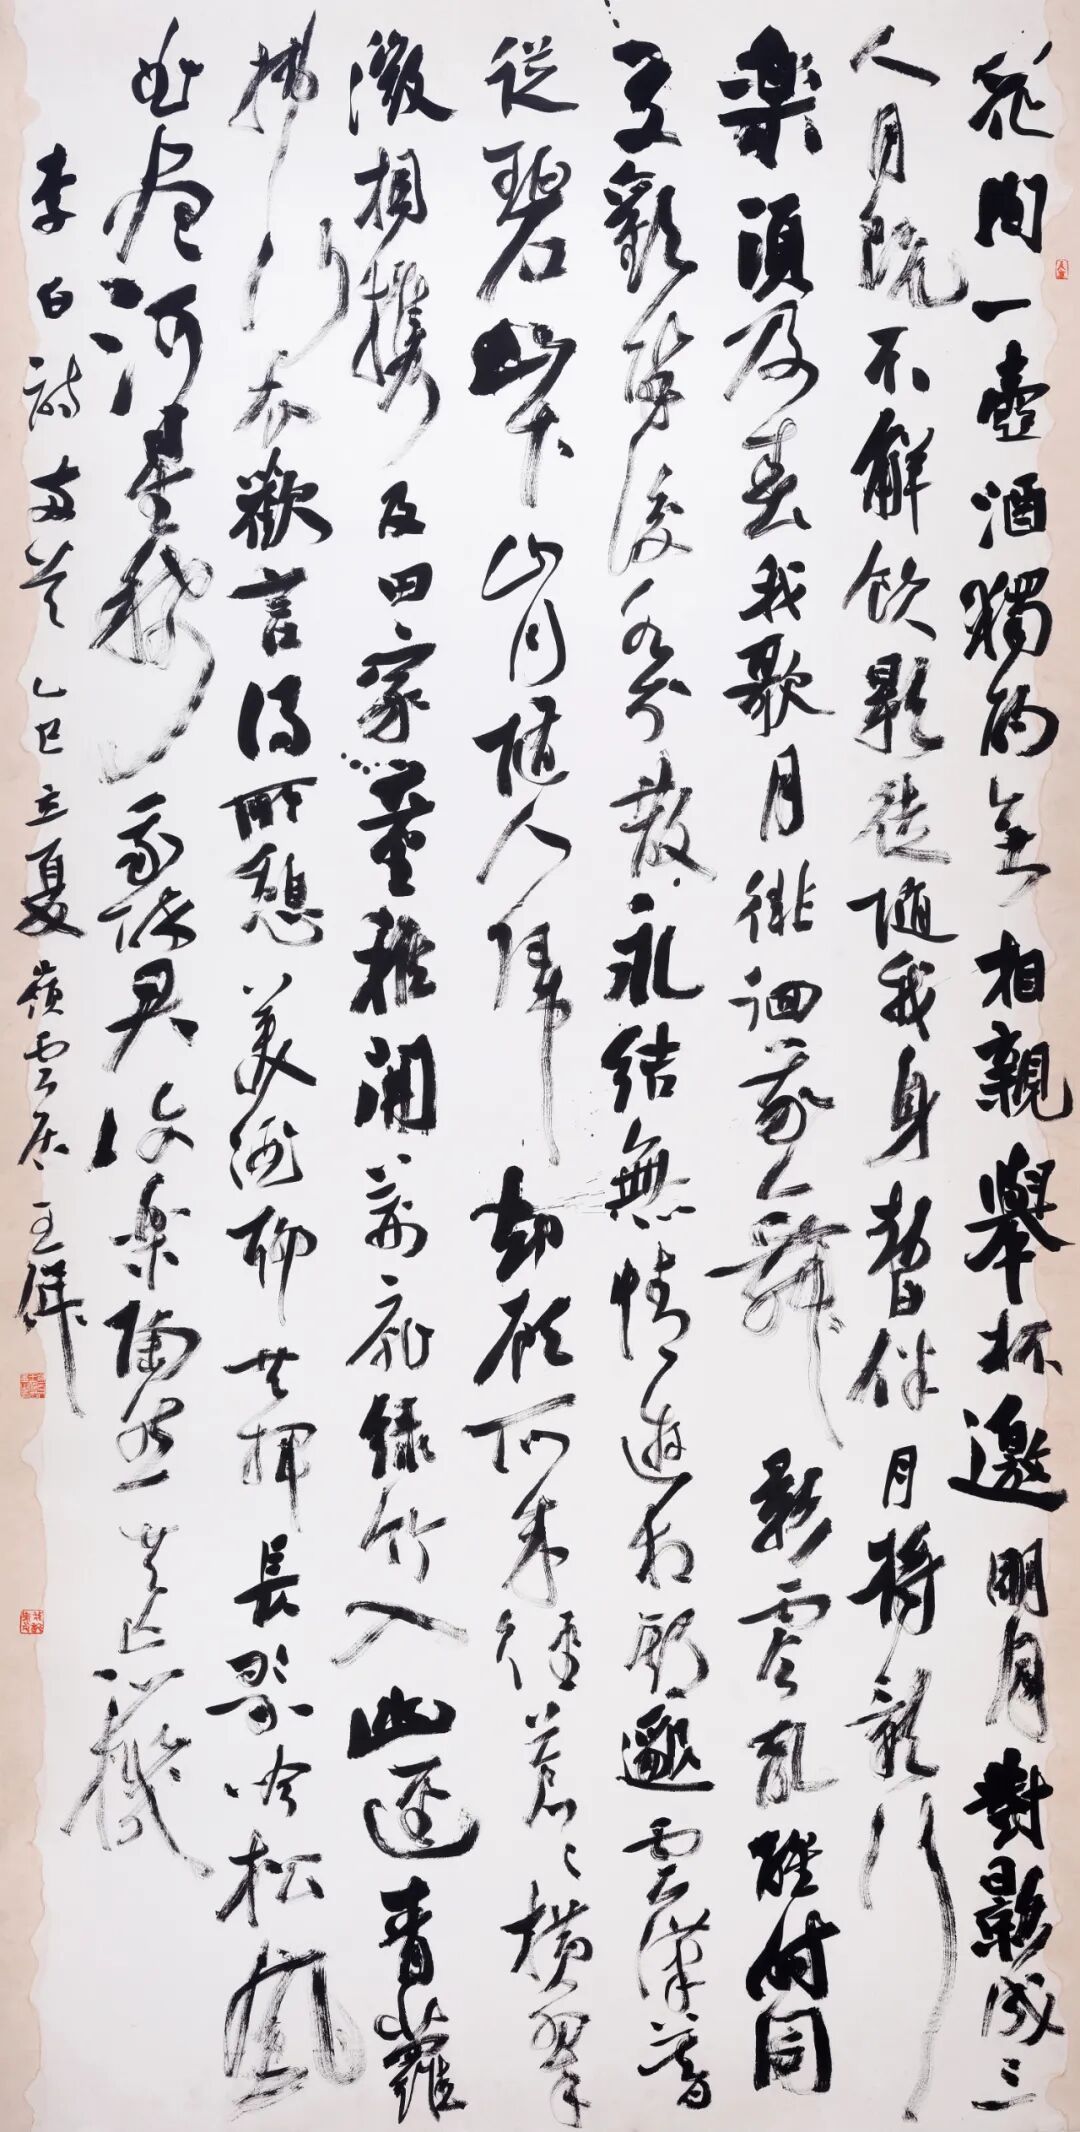 花間一壺酒獨酌無相親舉杯邀明月對影成三
人月既不解飲影徒隨我身暫伴月將影行
楽須及春我歌月徘徊我舞影零亂醒時同
交歡醉後各分散永結無情遊相期邈雲漢暮
從碧山下山月隨人歸却顧所來徑蒼〻橫翠
微相攜及田家童稚開荊扉綠竹入幽徑青蘿
拂行衣歡言得所憩美酒聊共揮長歌吟松風
曲盡河星稀我醉君復楽陶然共忘機
李白詩兩首 乙巳立夏 嶺雲居 王